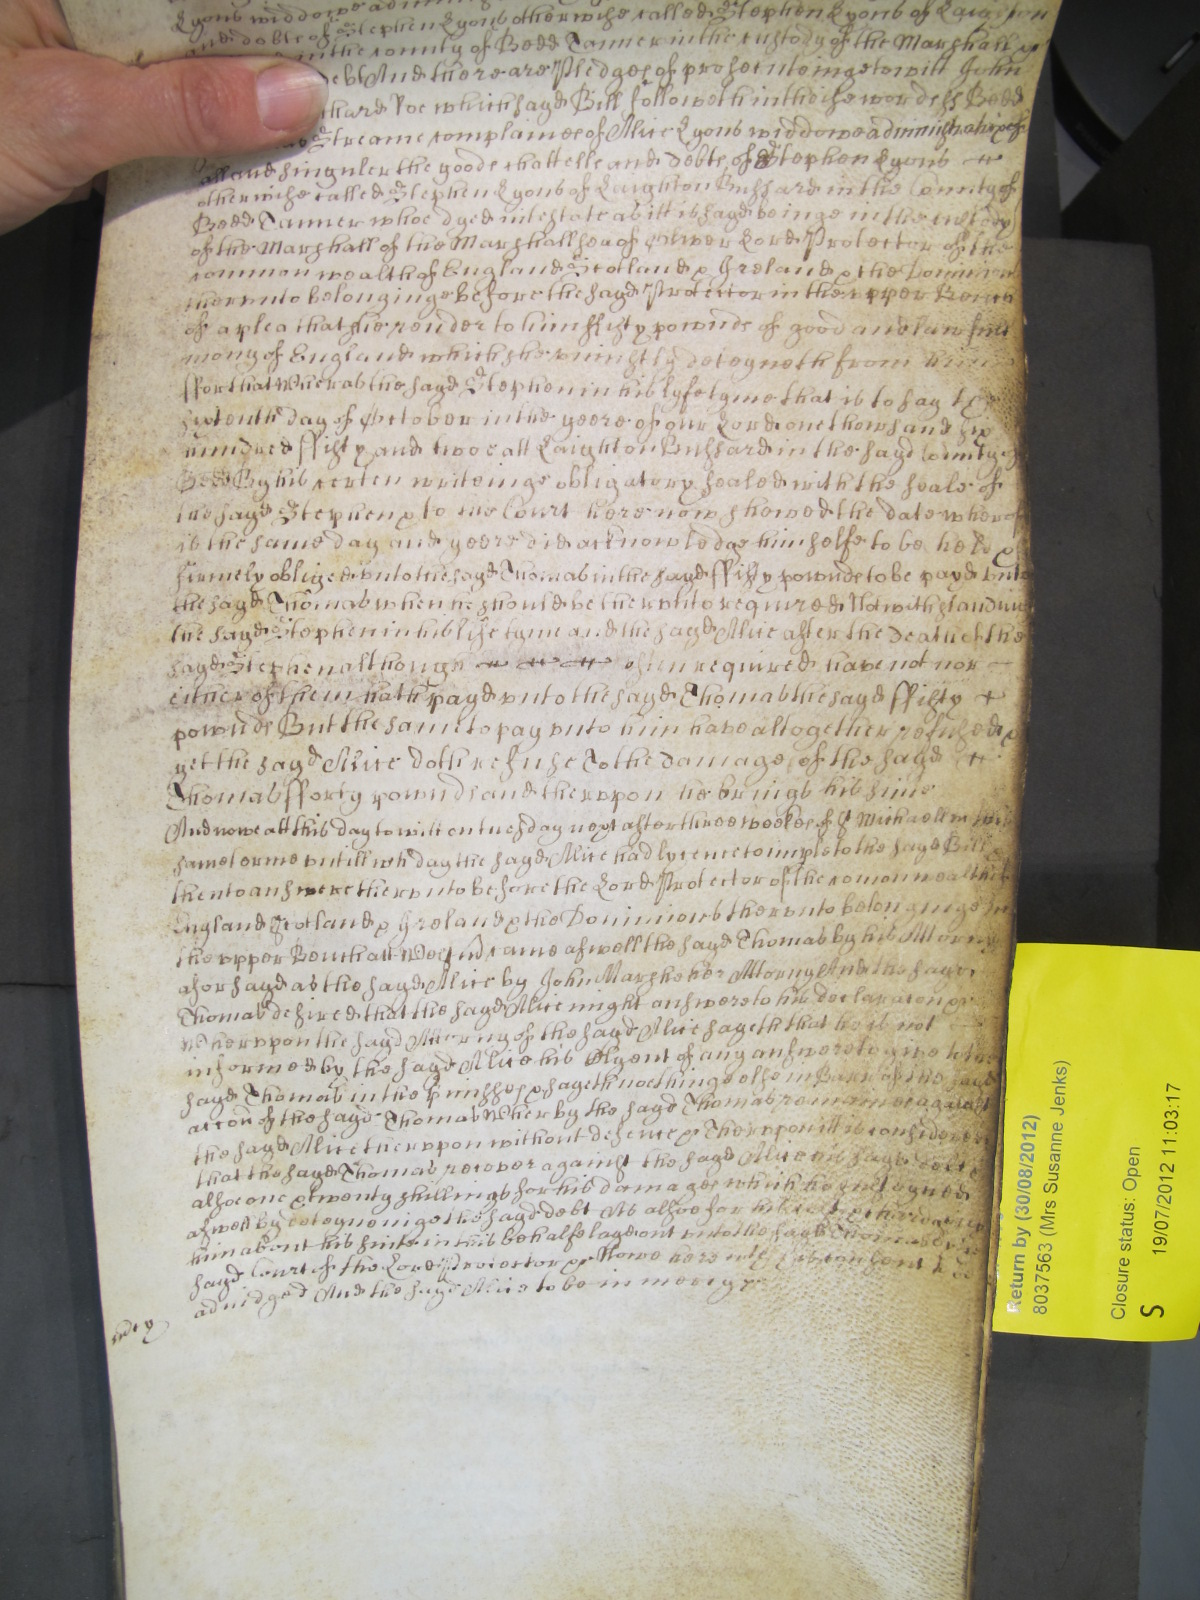 Lyons widdowe
and debts of Stephen Lyons otherwise called Stephen Lyons of Laighton
in the county of Bedd Tanner in the custody of the Marshall &
debt And there are Pledges of prosecuteinge to witt John
Roe which sayd Bill followeth in theise words ss Bedd
Streame complaines of Alice Lyons widdowe administratrix of
all and singuler the goods chattells and debts of Stephen Lyons
otherwise called Stephen Lyons of Laighton Bussard in the County of
Bedd Tanner whoe dyed intestate as itt is sayd beinge in the custody
of the Marshall of the Marshallsea of Oliver Lord Protector of the
common wealth of England Scotland & Ireland & the Dominions
therunto belonginge before the sayd Protector in the upper Bench
of a plea that she render to him ffifty pownds of good and lawfull
mony of England which she uniustly deteyneth from him
ffor that Wheras the sayd Stephen in his lyfe tyme that is to say the
day of October in the yeere of our Lord one thowsand six
hundred ffifty and twoe att Laighton Bussard in the sayd County of
Bedd By his certen writeinge obligatory sealed with the seale of
the sayd Stephen & to the Court here now showed the date wherof
is the same day and yeere did acknowledge himselfe to be held &
firmely obliged unto the sayd Thomas in the sayd ffifty pownds to be payd unto
the sayd Thomas when he should be therunto required Notwithstandinge
the sayd Stephen in his life tyme and the sayd Alice after the death of the
sayd Stephen although often required have not nor
either of them hath payd unto the sayd Thomas the sayd ffifty
pownds But the same to pay unto him have altogether refused &
yet the sayd Alice doth refuse To the damage of the sayd
Thomas fforty pownds and therupon he brings his suite
And nowe att this day to witt on tuesday next after three weekes of St Michaell in this
same terme untill wch day the sayd Alice had lycence to imple to the sayd Bill &
then to answere therunto before the Lord Protector of the comon wealth of
England Scotland & Ireland & the Dominions therunto belonginge in
the upper Bench att came aswell the sayd Thomas by his Attorny
aforsayd as the sayd Alice by John Marshe her Attorny And the sayd
Thomas desired that the sayd Alice might answere to his declaracon &
Wherupon the sayd Attorny of the sayd Alice sayeth that he is not
informed by the sayd Alice his Clyent of any answere to give to the
sayd Thomas in the premisses & sayeth nothinge else in Barr of the sayd
accon of the sayd Thomas Wherby the sayd Thomas against
the sayd Alice therupon without defence & Therupon itt is considered
that the sayd Thomas recover against the sayd Alice his sayd debt &
alsoe one & twenty shillings for his damages which he susteyned
aswell by deteyneinge the sayd debt As alsoe for his
him about his suite in this behalfe layd out unto the sayd Thomas by the
sayd Court of the Lord Protector & nowe here his consent
adiudged And the sayd Alice to be in mercy &c
Return by (30/08/2012)
8037563 (Mrs Susanne Jenks)
Closure status: Open
S 19/07/2012 11:03:17